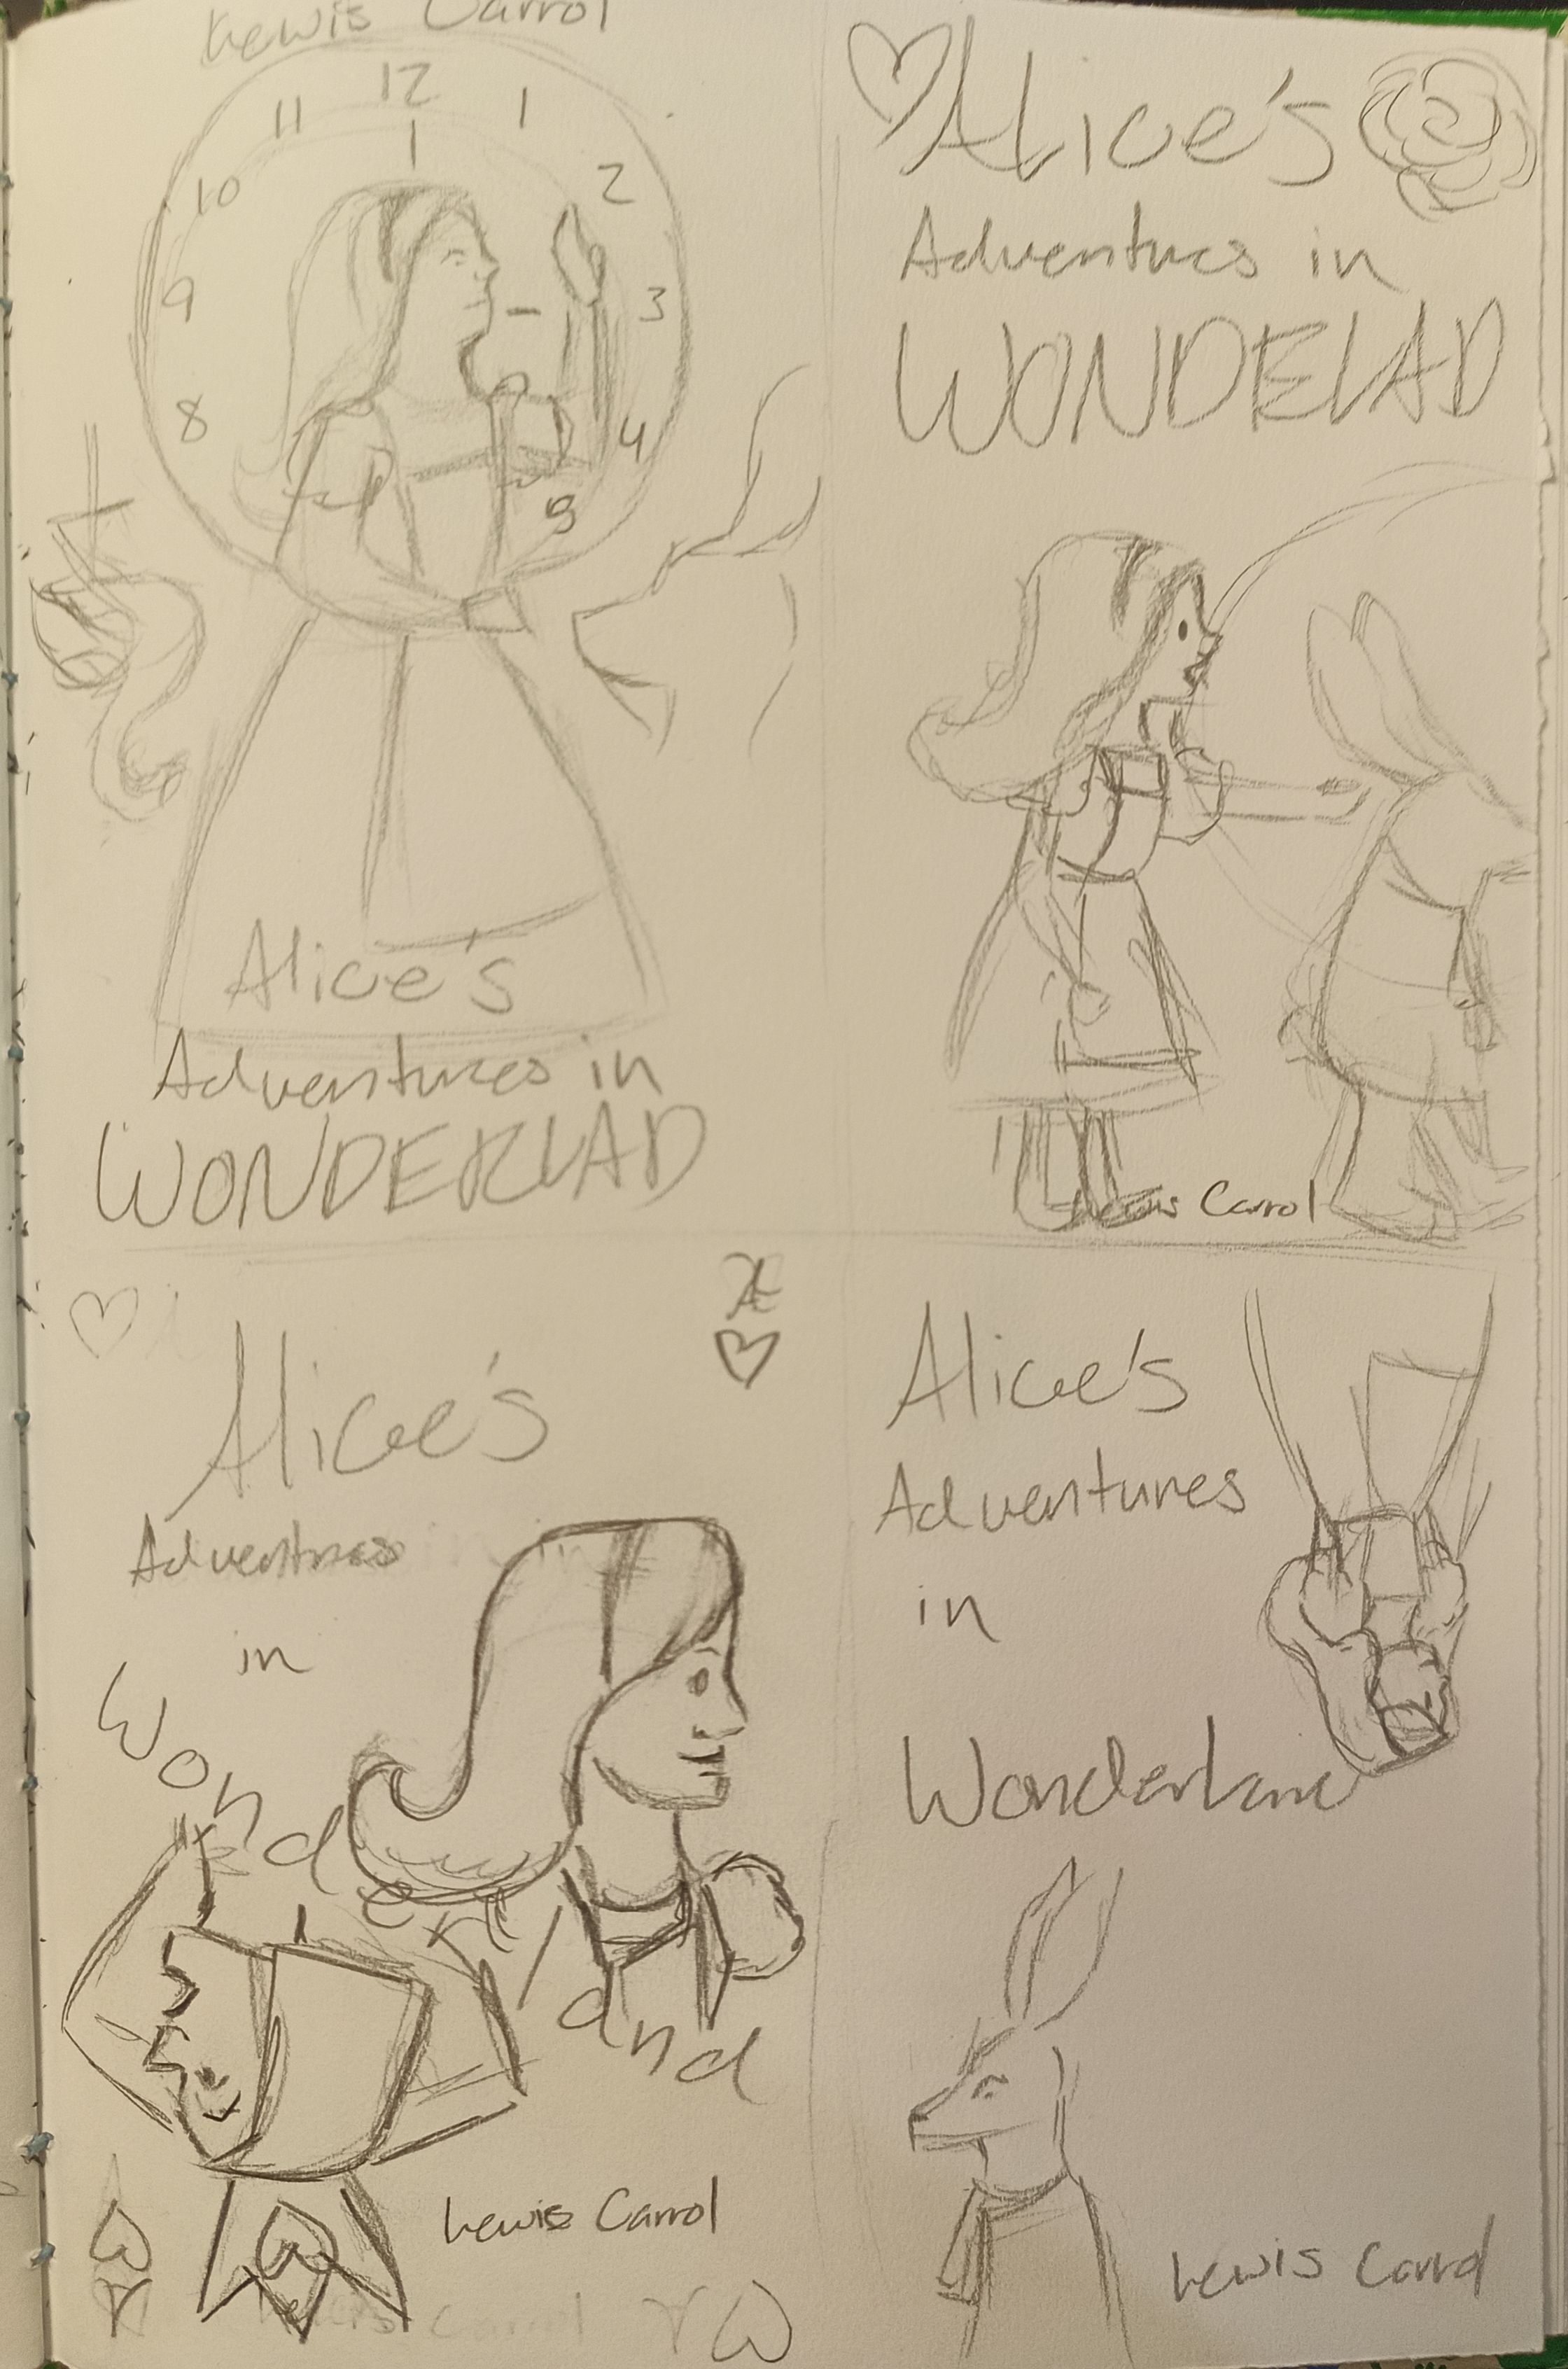 Lewis Carrol
12
11
1
10
2
9
3
8
4
5
Alice's
Adventures in
WONDERLAD
Alice's
Adventures in
WONDELAD
Lewis Carrol
Alice's
Adventures
in
Wonderland
Lewis Carrol
Alice's
Adventures
in
Lewis Carrol